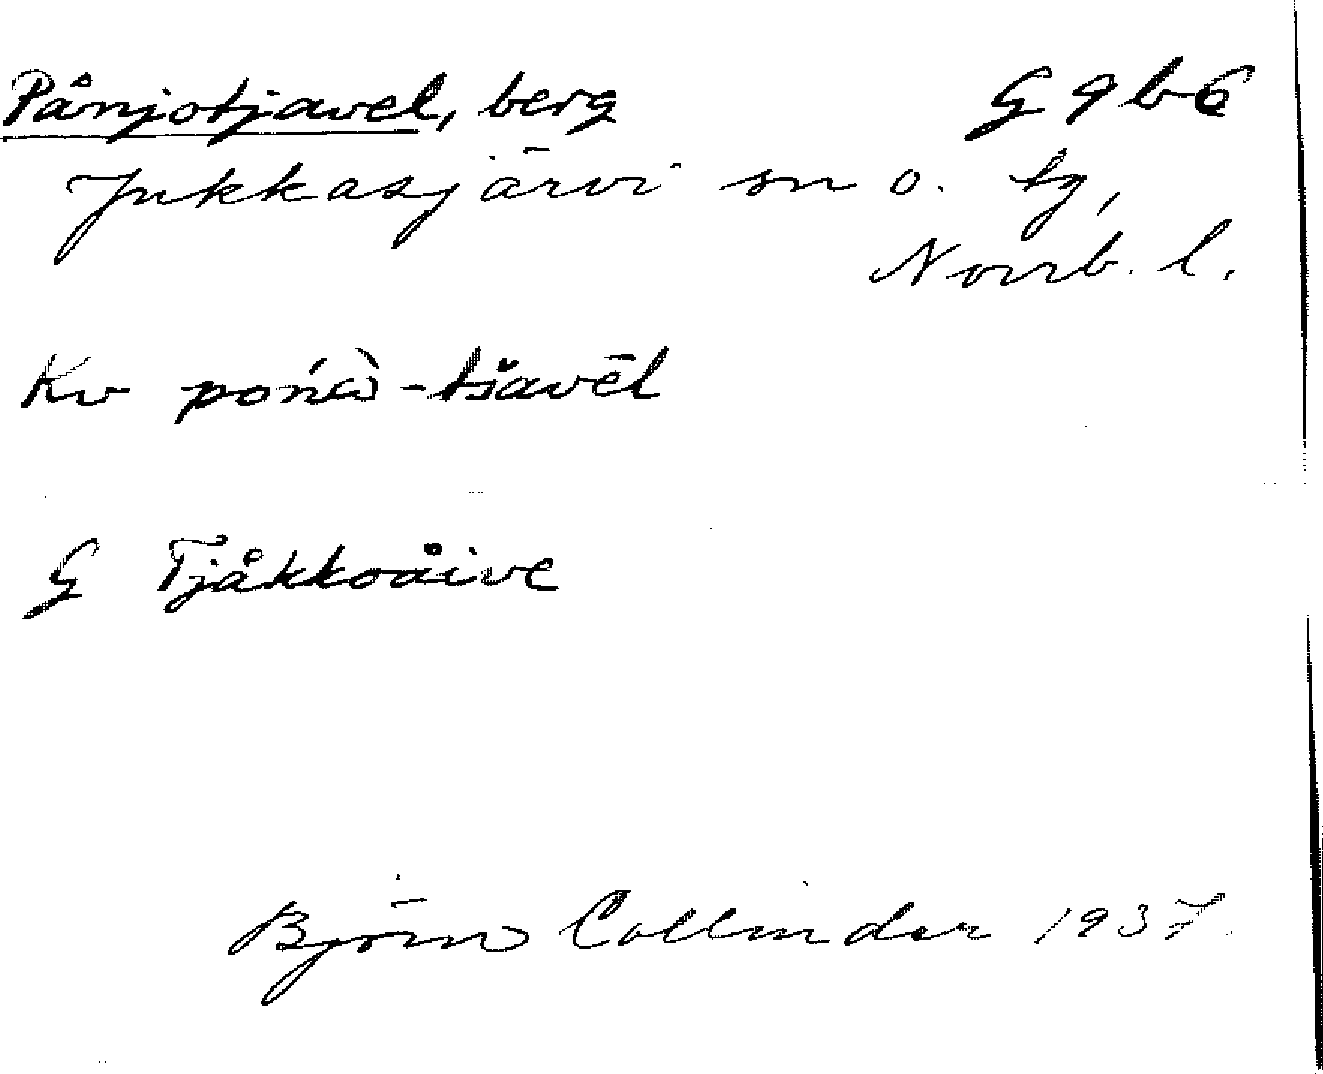 Pånjotjavel, berg G 9 b 6
Jukkasjärvi sn o. tg,
Norrb. l.
Kv -tšavēl
G Tjåkkoåive
Björn Collinder 1937.